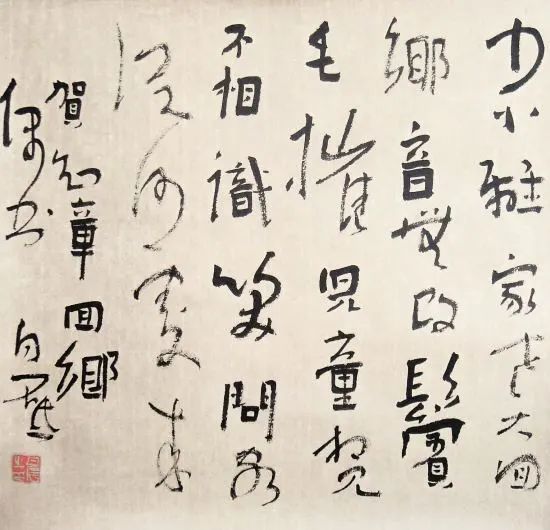 少小離家老大回
鄉音無改鬢
毛摧兒童相見
不相識笑問客
從何處來
賀知章回鄉
偶書 白